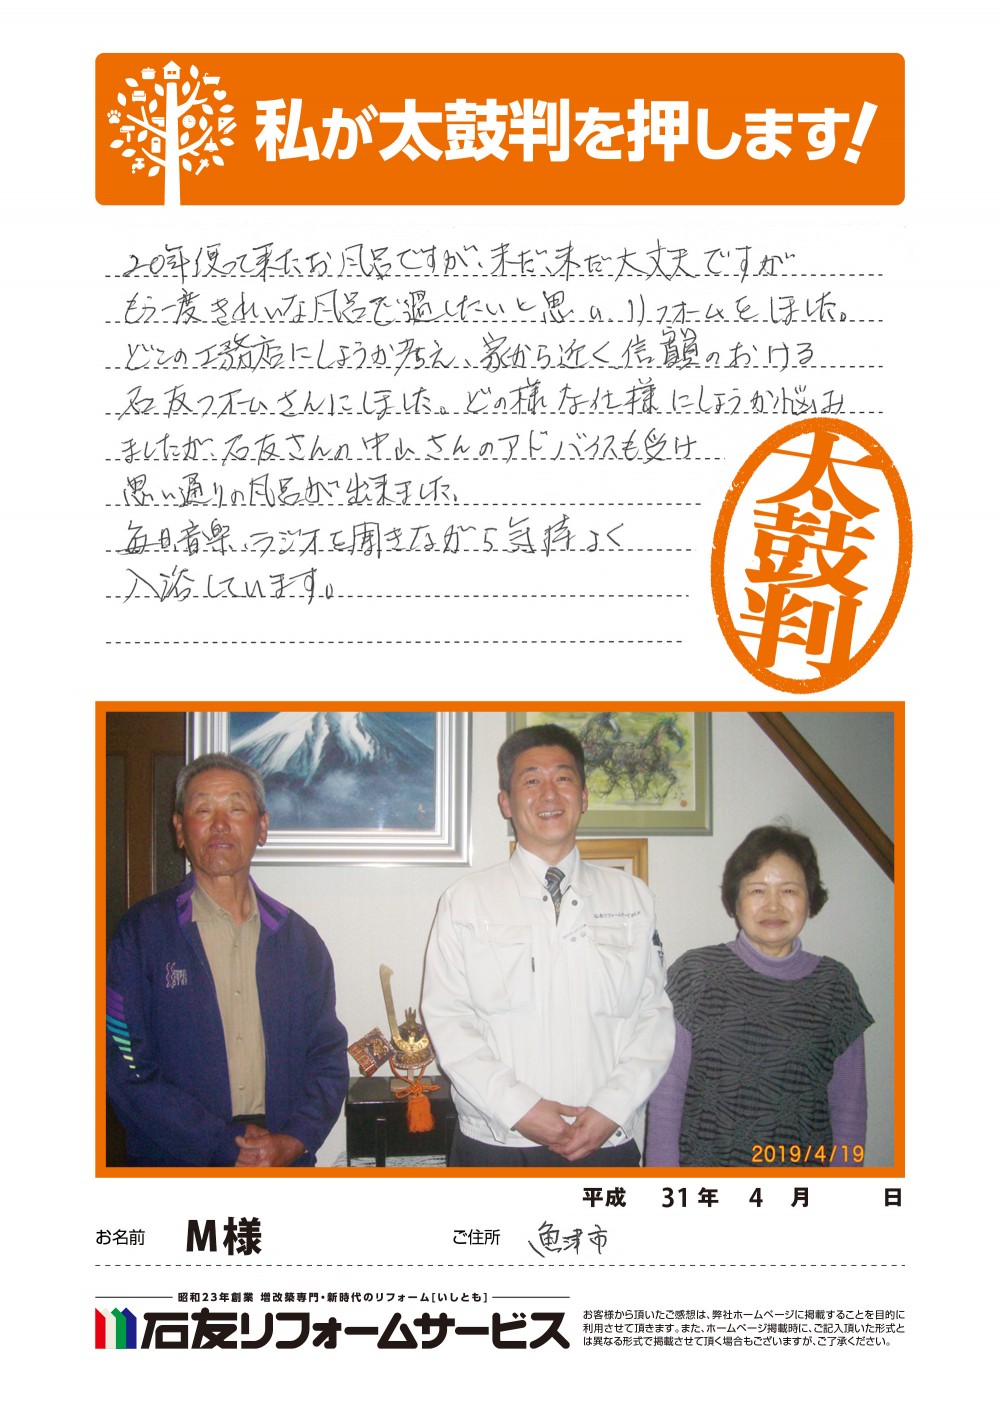 私が太鼓判を押します!
20年使って来たお風呂ですが、未だ、未だ大丈夫ですが
もう一度きれいな風呂で過したいと思い、リフォームをしました。
どこの工務店にしようか考え、家から近く信頼のおける
石友フォームさんにしました。どの様な仕様にしようか悩み
ましたが、石友さんの中山さんのアドバイスも受け
思い通りの風呂が出来ました。
毎日、音楽、ラジオを聞きながら気持よく
入浴しています。
太鼓判
石友リフォームサービス
2019/4/19
平成 31年 4 月 日
お名前 M様 ご住所 魚津市
昭和23年創業 増改築専門・新時代のリフォーム[いしとも]
石友リフォームサービス
お客様から頂いたご感想は、弊社ホームページに掲載することを目的に
利用させて頂きます。また、ホームページ掲載時に、ご記入頂いた形式と
は異なる形式で掲載させて頂く場合もございますが、ご了承ください。